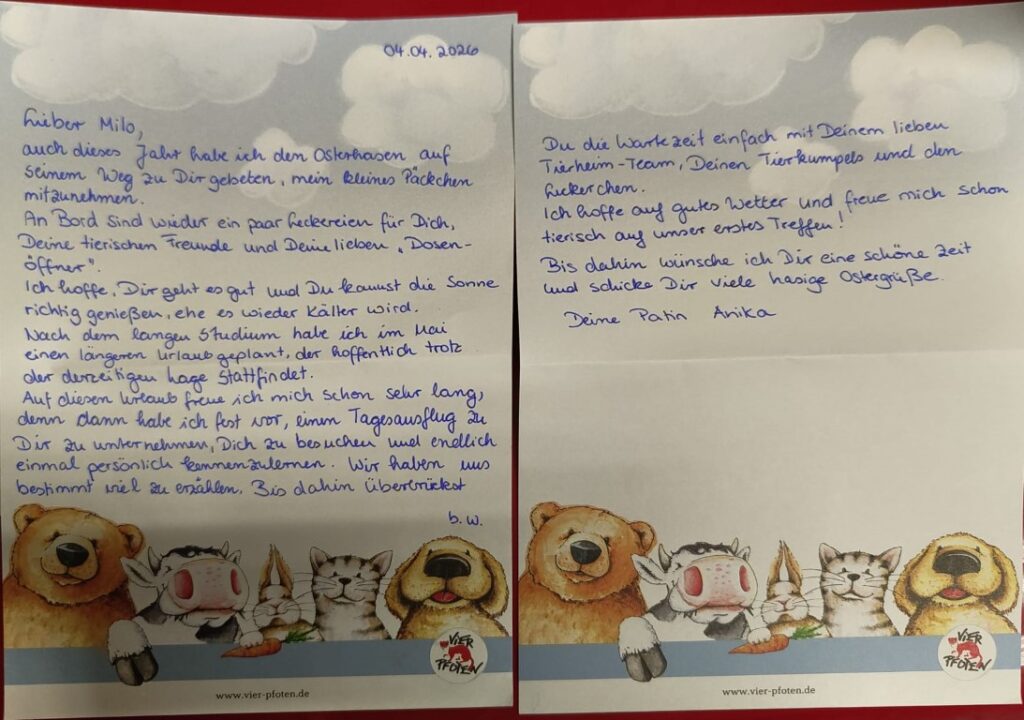 04.04.2026
Lieber Milo,
auch dieses Jahr habe ich den Osterhasen auf
seinem Weg zu Dir gebeten, mein kleines Päckchen
mitzunehmen.
An Bord sind wieder ein paar Leckereien für Dich,
Deine tierischen Freunde und Deine lieben „Dosen-
öffner".
Ich hoffe, Dir geht es gut und Du kannst die Sonne
richtig genießen, ehe es wieder kälter wird.
Nach dem langen Studium habe ich im Mai
einen längeren Urlaub geplant, der hoffentlich trotz
der derzeitigen Lage stattfindet.
Auf diesen Urlaub freue ich mich schon sehr lang,
denn dann habe ich fest vor, einen Tagesausflug zu
Dir zu unternehmen, Dich zu besuchen und endlich
einmal persönlich kennenzulernen. Wir haben uns
bestimmt viel zu erzählen. Bis dahin überbrückst
b.w.
VIER
PFOTEN
www.vier-pfoten.de
Du die Wartezeit einfach mit Deinem lieben
Tierheim-Team, Deinen Tierkumpels und den
Leckerchen.
Ich hoffe auf gutes Wetter und freue mich schon
tierisch auf unser erstes Treffen!
Bis dahin wünsche ich Dir eine schöne Zeit
und schicke Dir viele hasige Ostergrüße.
Deine Patin Anika
VIER
PFOTEN
www.vier-pfoten.de